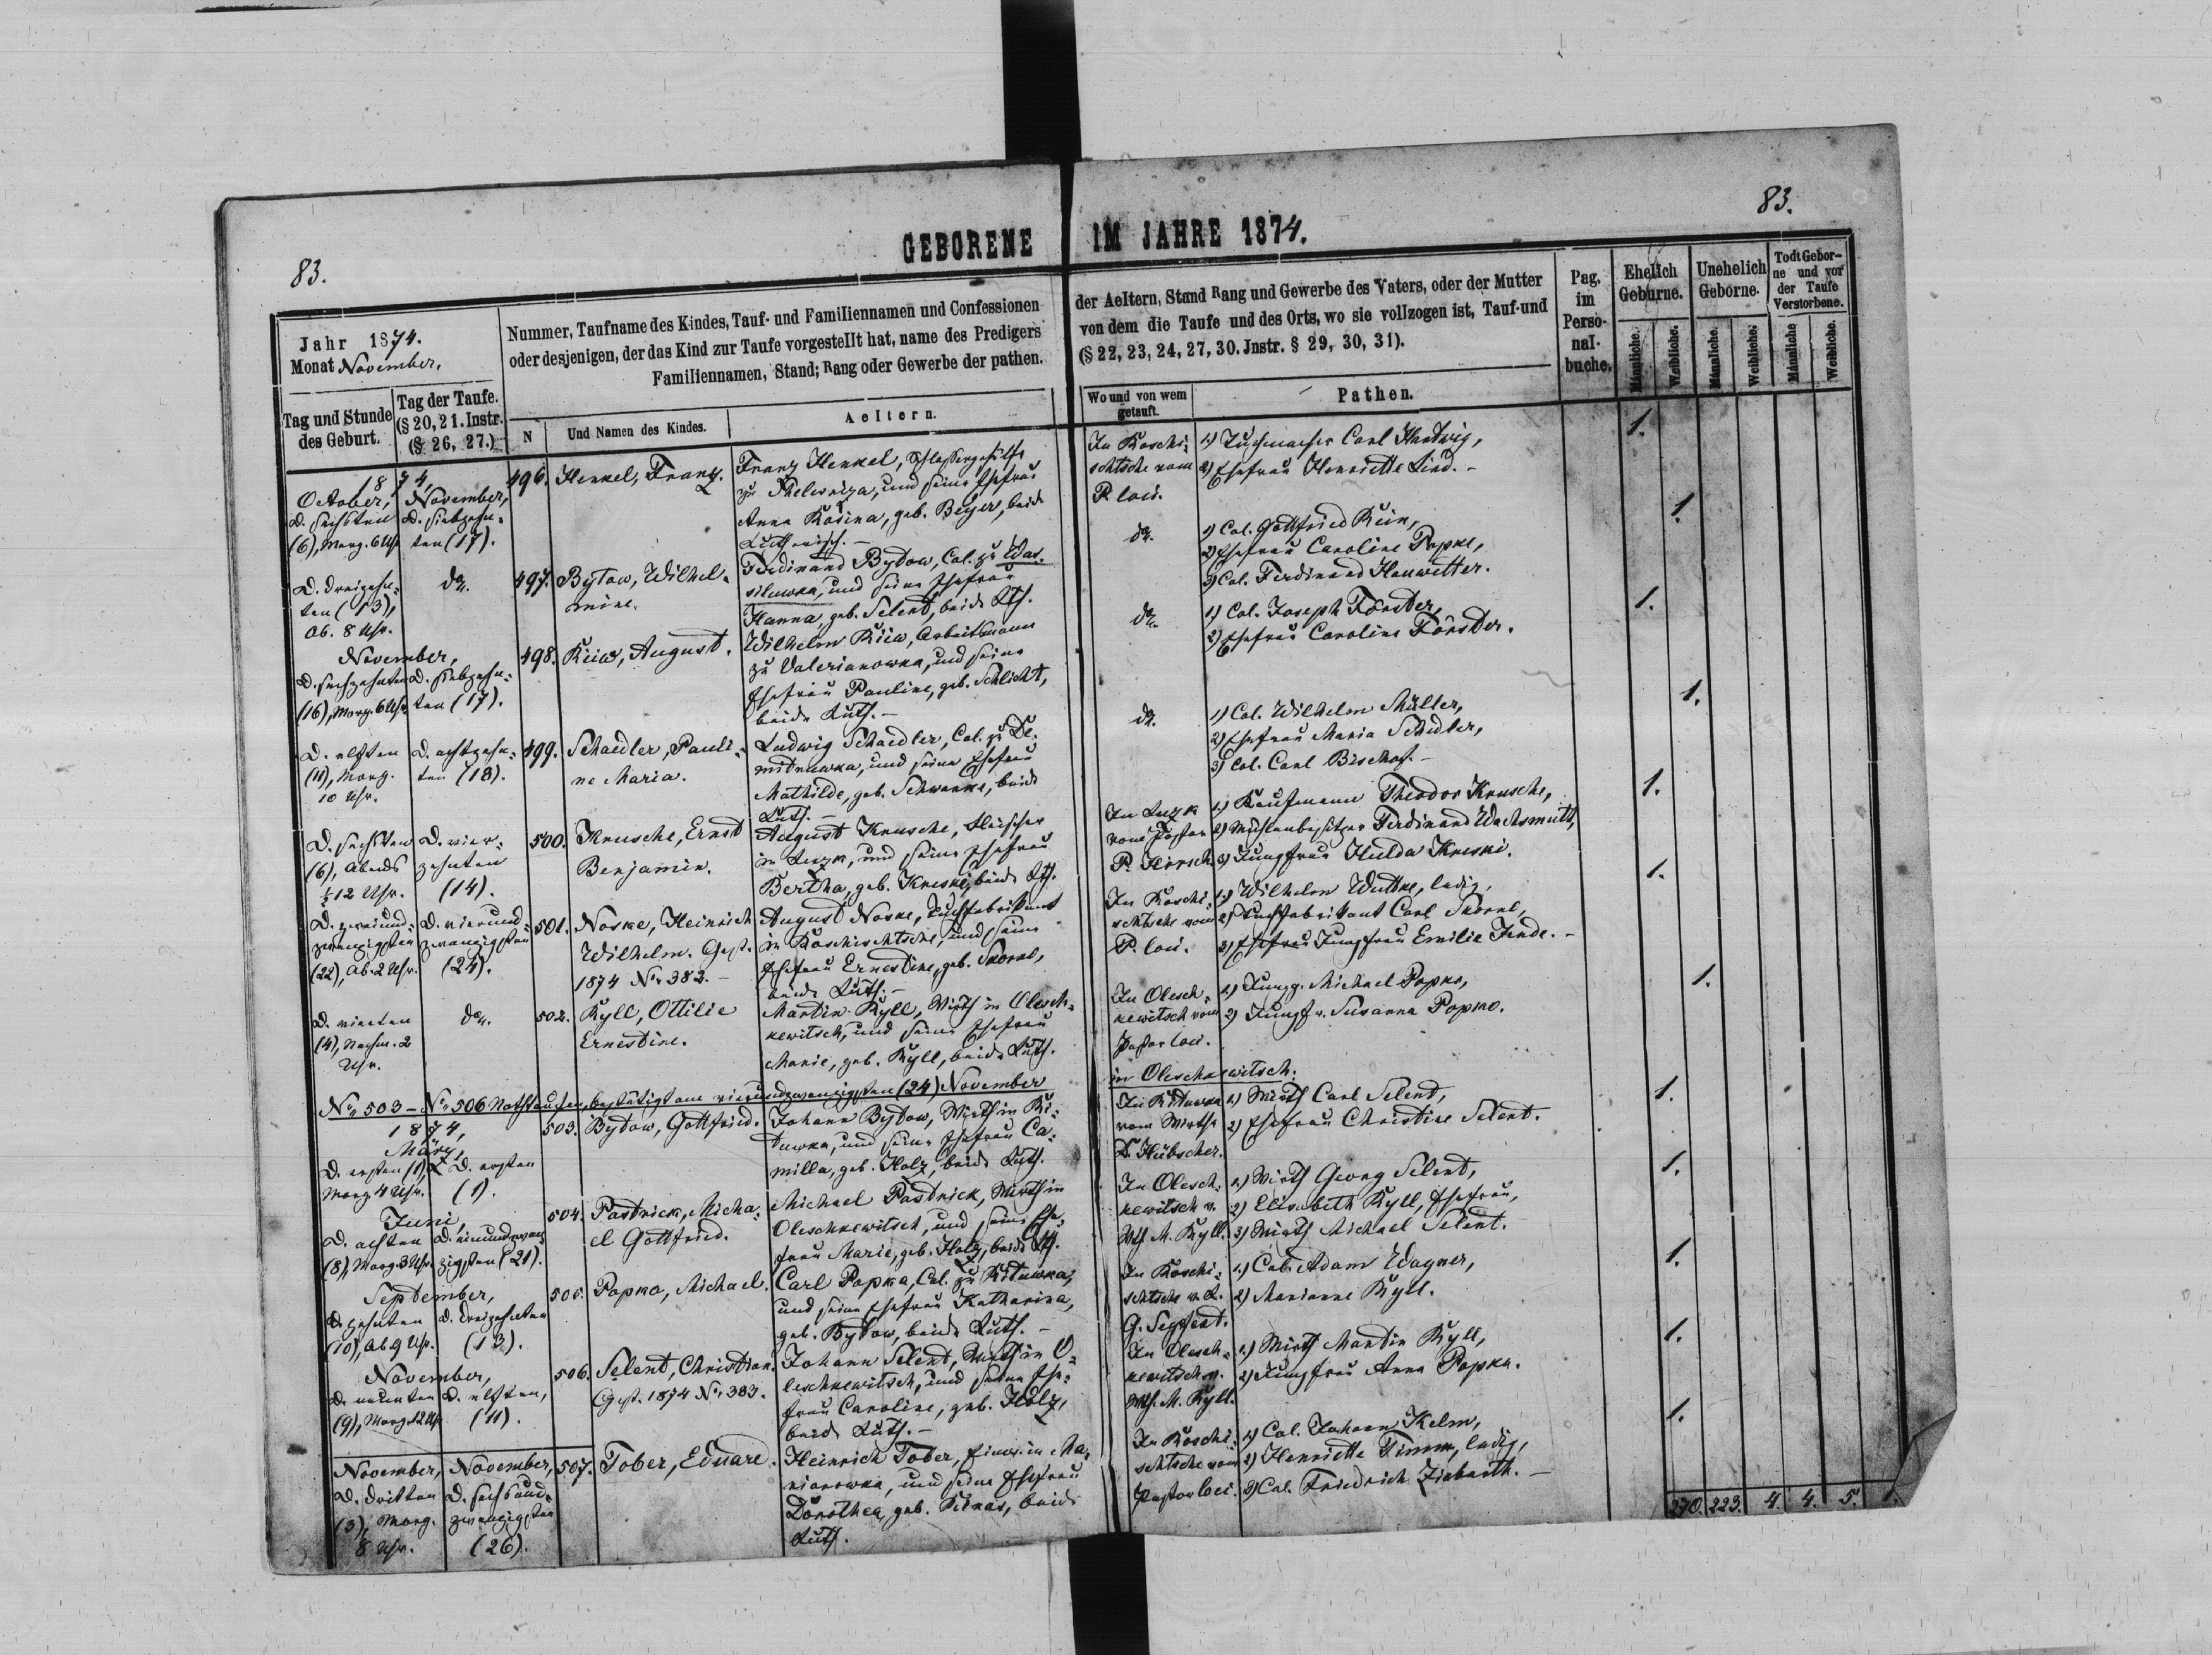 83.
GEBORENE IM JAHRE 1874.
83.
Jahr 1874.
Monat November.
Nummer, Taufname des Kindes, Tauf- und Familiennamen und Confessionen
oder desjenigen, der das Kind zur Taufe vorgestellt hat, name des Predigers
Familiennamen, Stand; Rang oder Gewerbe der pathen.
der Aeltern, Stand Rang und Gewerbe des Vaters, oder der Mutter
von dem die Taufe und des Orts, wo sie vollzogen ist, Tauf-und
(§ 22, 23, 24, 27, 30. Jnstr. § 29, 30, 31).
Pag. im Perso- nal- buche.
Ehelich Geburne.
Unehelich Geborne.
Todt Gebor- ne und vor der Taufe Verstorbene.
Männliche. Weibliche. Männliche. Weibliche. Männliche Weibliche.
Tag und Stunde des Geburt.
Tag der Taufe. (§ 20, 21. Instr. (§ 26, 27.)
N
Und Namen des Kindes.
Aeltern.
Wo und von wem getauft.
Pathen.
1874,
October, November,
d. sechsten d. siebzehn-
(6), Morg. 6 Uhr ten (17).
496. Henkel, Franz.
Franz Henkel, Schlossergehülfe
und seine Ehefrau
Anna Rosina, geb. Beyer, beide
Lutherisch. –
In Roschi-
schtsche vom
P. loci.
1) Tuchmacher Carl Hartwig,
2) Ehefrau Henriette Lind. –
1.
d. dreizehn-
ten (13),
Ab. 8 Uhr.
do.
497. Bytow, Wilhel-
mine.
Ferdinand Bytow, Col. zu Was-
siluwka, und seine Ehefrau
Hanna, geb. Selent, beide Lth.
do.
1) Col. Gottfried Rein,
2) Ehefrau Caroline Popke,
3) Col. Ferdinand Hanwetter.
1.
November,
d. sechzehnten d. siebzehn-
(16), Morg. 6 Uhr. ten (17).
498. Kriiw, August.
Wilhelm Kriiw, Arbeitsmann
zu Valerianowka, und seine
Ehefrau Pauline, geb. Schlicht,
beide Luth. –
do.
1) Col. Joseph Förster,
2) Ehefrau Caroline Förster.
1.
d. elften d. achtzehn-
(11), Morg. ten (18).
10 Uhr.
499. Schaedler, Pauli-
ne Maria.
Ludwig Schaedler, Col. zu De-
mitruwka, und seine Ehefrau
Mathilde, geb. Schwanke, beide
Luth. –
do.
1) Col. Wilhelm Müller,
2) Ehefrau Maria Schedler,
3) Col. Carl Bischof. –
1.
d. sechsten d. vier-
(6), Abends zehnten
½ 12 Uhr. (14).
500. Krusche, Ernst
Benjamin.
August Krusche, Fleischer
in Luzk, und seine Ehefrau
Bertha, geb. Kreski, beide Lth.
In Luzk
vom Pastor
P. Hirsch.
1) Kaufmann Theodor Krusche,
2) Mühlenbesitzer Ferdinand Wachsmuth,
3) Jungfrau Hulda Kreski.
1.
d. zweiund- d. vierund-
zwanzigsten zwanzigsten
(22), Ab. 2 Uhr. (24).
501. Noske, Heinrich
Wilhelm. Gest.
1874 No 382. –
August Noske, Tuchfabrikant
in Roschischtsche, und seine
Ehefrau Ernestine, geb. Skornl,
beide Luth. –
In Roschi-
schtsche vom
P. loci.
1) Wilhelm Wuttke, ledig,
2) Tuchfabrikant Carl Skornl,
3) Jungfrau Emilie Jende. –
1.
d. vierten
(4), Nachm. 2
Uhr.
do.
502. Kyll, Ottilie
Ernestine.
Martin Kyll, Wirth in Olesch-
kewitsch, und seine Ehefrau
Marie, geb. Kyll, beide Luth.
In Olesch-
kewitsch vom
Pastor loci.
1) Jungg. Michael Popko,
2) Jungfr. Susanna Popko.
1.
No 503 – No 506 Nothtaufen, bestätigt am vierundzwanzigsten (24) November in Oleschkewitsch:
1874,
März,
d. ersten (1), d. ersten
Morg. 4 Uhr. (1).
503. Bytow, Gottfried.
Johann Bytow, Wirth in Ki-
tuwka, und seine Ehefrau Ca-
milla, geb. Holz, beide Luth.
In Kituwka
vom Wirthe
D. Hübscher.
1) Wirth Carl Selent,
2) Ehefrau Christine Selent.
1.
Juni,
d. achten d. einundzwan-
(8), Morg. 3 Uhr. zigsten (21).
504. Pastrick, Micha-
el Gottfried.
Michael Pastrick, Wirth in
Oleschkewitsch, und seine Ehe-
frau Marie, geb. Holz, beide Lth.
In Olesch-
kewitsch v.
Wth. M. Kyll.
1) Wirth Georg Selent,
2) Elisabeth Kyll, Ehefrau,
3) Wirth Michael Selent.
1.
September,
d. zehnten d. dreizehnten
(10), Ab 9 Uhr. (13).
505. Popko, Michael.
Carl Popka, Col. zu Kituwka,
und seine Ehefrau Katharina,
geb. Bytow, beide Luth. –
In Roschi-
schtsche v. L.
G. Segfert.
1) Col. Adam Wagner,
2) Marianne Kyll.
1.
November,
d. neunten d. elften,
(9), Morg. 2 Uhr (11).
506. Selent, Christian.
Gest. 1874 No 383.
Johann Selent, Wirth in O-
leschkewitsch, und seine Ehe-
frau Caroline, geb. Holz,
beide Luth. –
In Olesch-
kewitsch v.
Wth. M. Kyll.
1) Wirth Martin Kyll,
2) Jungfrau Anna Popka.
1.
November, November,
d. dritten d. sechsund-
(3), Morg. zwanzigsten
8 Uhr. (26).
507. Tober, Eduard.
Heinrich Tober, Einw. in Ma-
rianowka, und seine Ehefrau
Dorothea, geb. Kiinas, beide
Luth.
In Roschi-
schtsche vom
Pastor loci.
1) Col. Johann Kelm,
2) Henriette Timm, ledig,
3) Col. Friedrich Ziebarth. –
1.
270. 223. 4. 4. 5. 1.